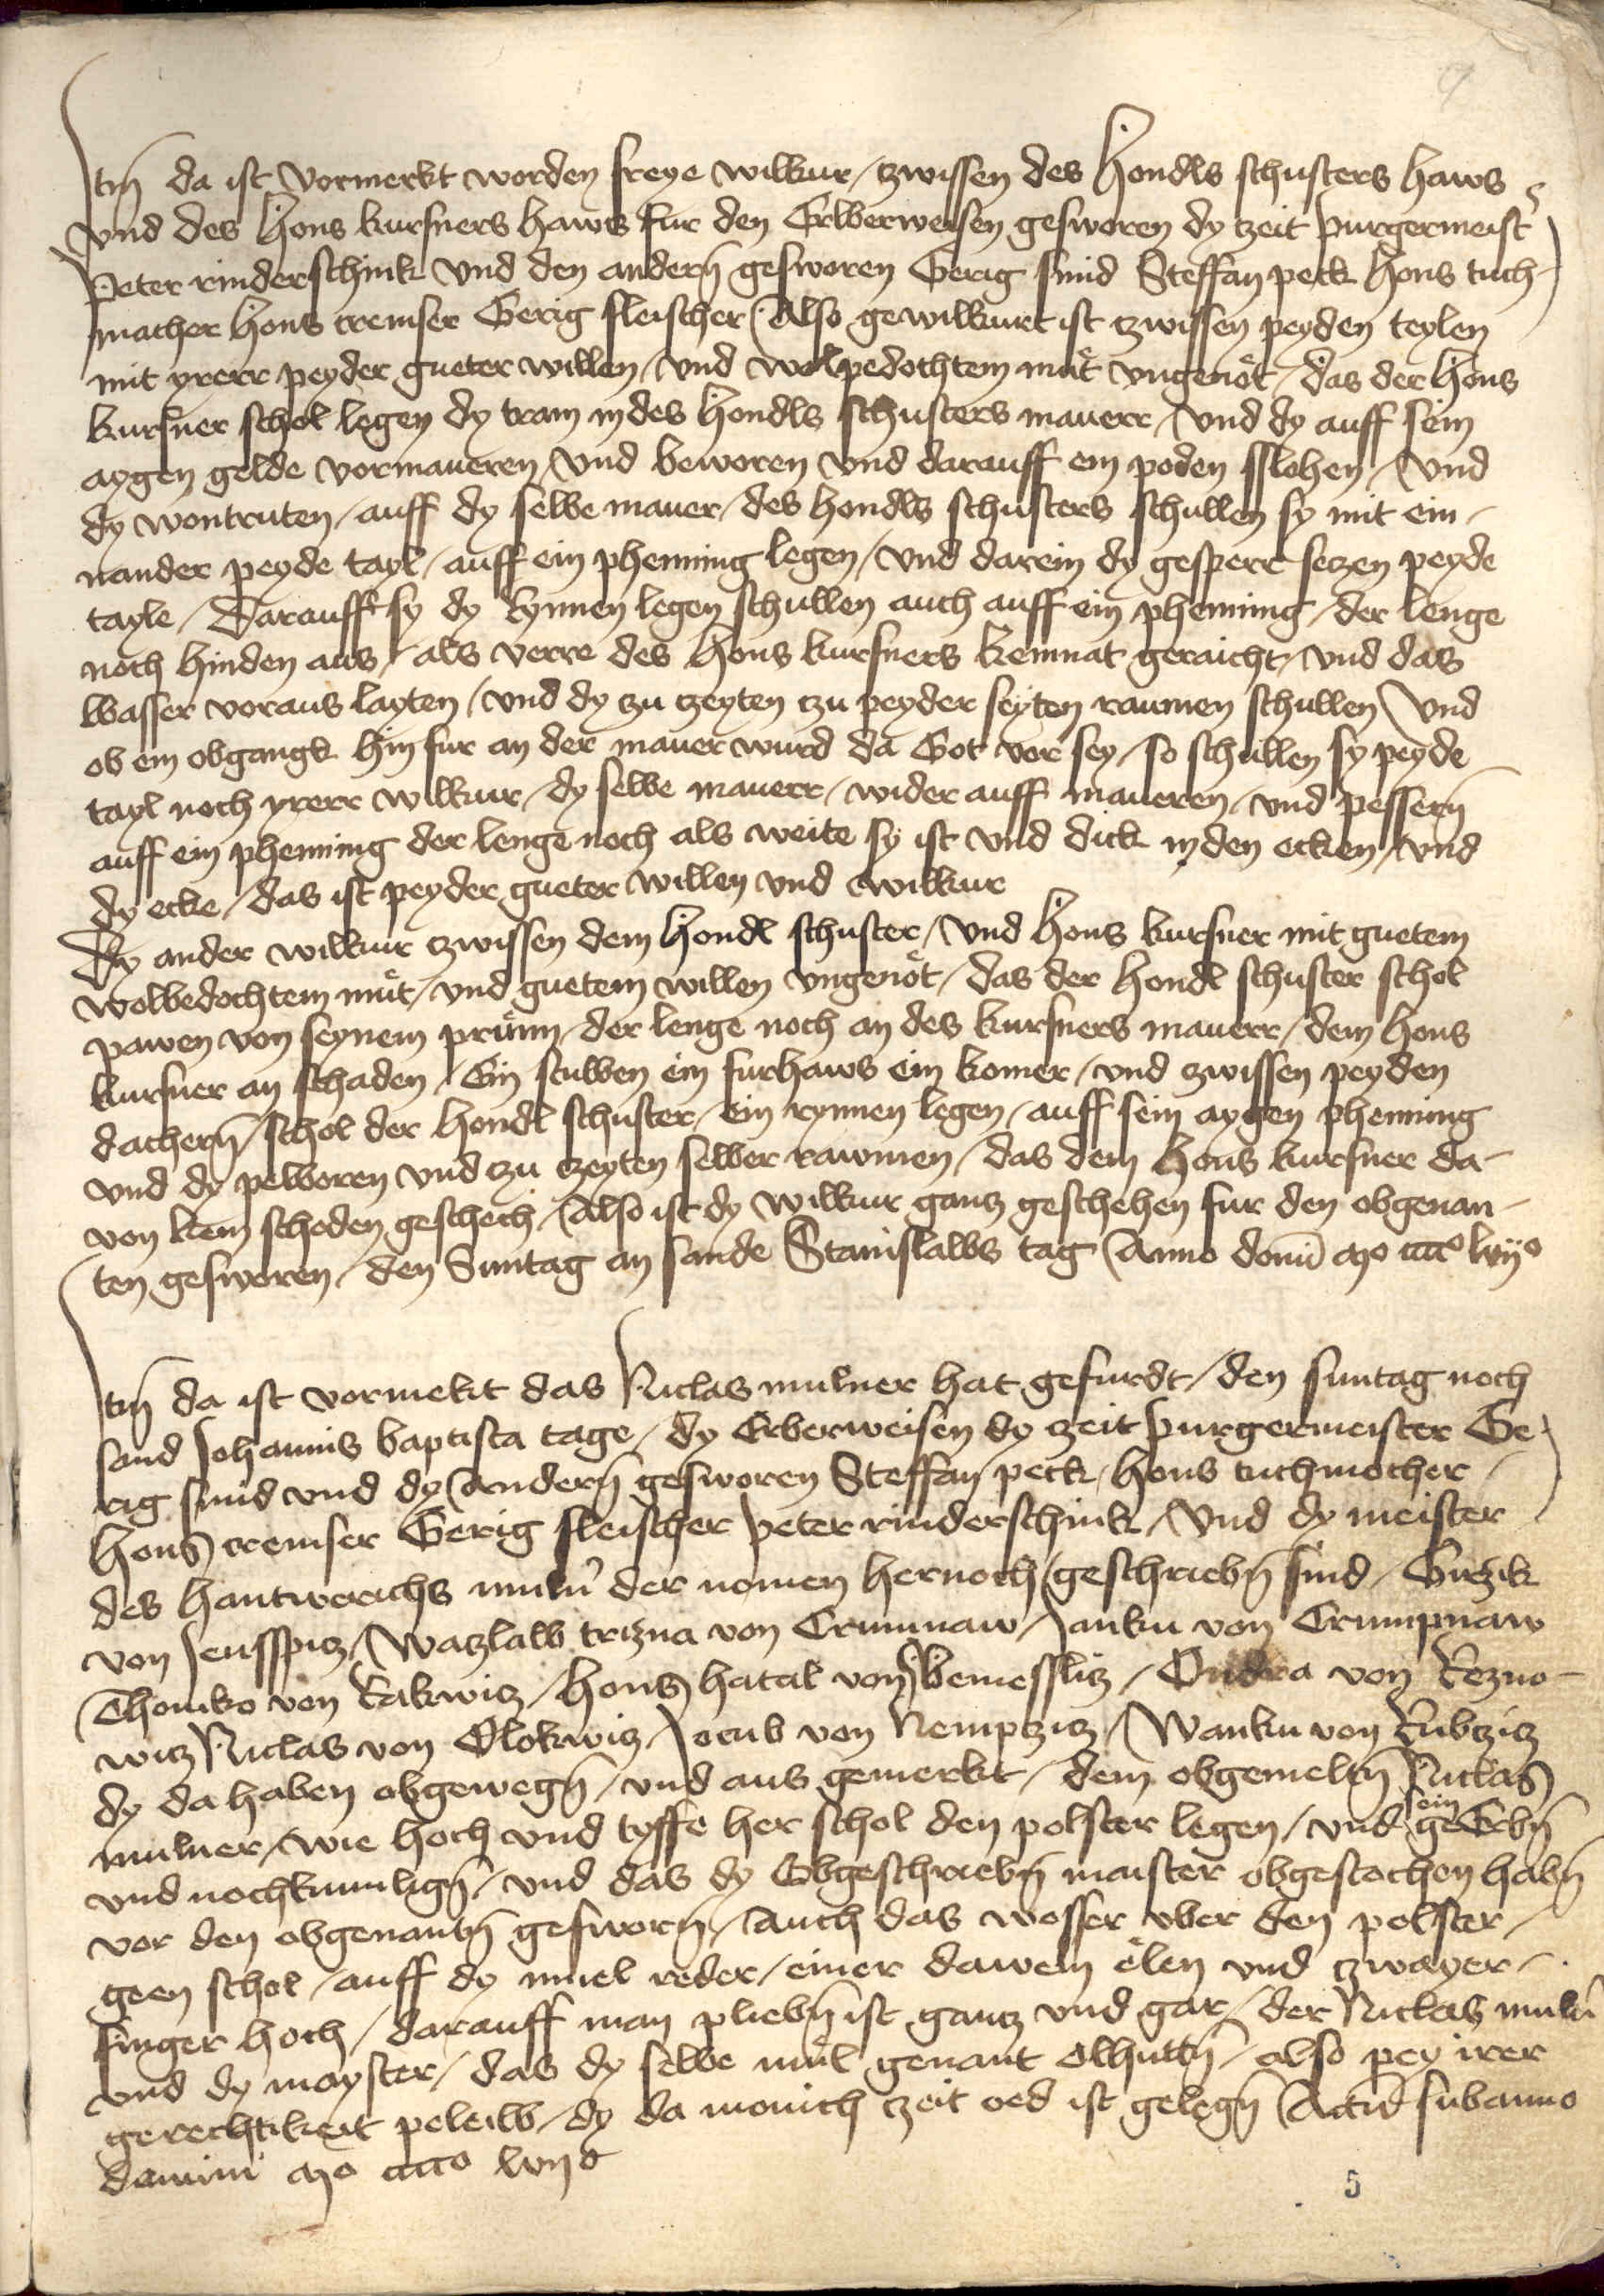 Itm̄ da ist vormerkt worden freye wilkur / zwissen des Hondls schusters haws
vnd des Hons kursners haws fur den Erberweisen gesworen dy zeit purgermeist
Peter rinderschink vnd den andern̄ gesworen Gerig smid Steffan peck Hons tuch-
macher Hons cremser Gerig fleischer / Also gewilkurt ist zwissen peyden teylen
mit yrerr peyder gueter willen / vnd wolpedochtem můt vngenöt / das der Hons
kursner schol legen dy tram in des Hondls schusters mauerr / vnd dy auff sein
aygen gelde vormaueren vnd beworen vnd darauff ein poden sslohen / vnd
dy wontruten / auff dy selbe mauer / des Hondls schusters schullen sy mit ein-
nander peyde tayl / auff ein phenning legen / vnd darein dy gesperr seczen peyde
tayle / Darauff sy dy Rynnen legen schullen auch auff ein phenning / der lenge
noch hinden aws / als verre des Hons kursners kemnat geraicht / vnd das
wasser voraus layten / vnd dy zu czeyten zu peyder seyten raumen schullen / vnd
ob ein obgangk hin fur an der mauer wurd da Got vor sey / so schullen sy peyde
tayl noch yrerr wilkur / dy selbe mauerr / wider auff maueren / vnd pessern̄
auff ein phenning der lenge noch als weite sy ist vnd dick in den ecken / vnd
dy ecke / das ist peyder gueter willen vnd wilkur
Dy ander wilkur czwissen dem Hondl schuster / vnd Hons kursner mit guetem
wolbedochtem můt / vnd guetem willen vngenöt / das der Hondl schuster schol
pawen von seynem průnn / der lenge noch an des kursners mauerr / dem Hons
kursner an schaden / Ein stuben ein furhaws ein komer / vnd zwissen peyden
dachern̄ / schol der Hondl schuster / ein rynnen legen / auff sein aygen phenning
vnd dy peworen vnd zu czeyten selber rawmen / das dem Hons kursner da-
von kein schoden geschech / Also ist dy wilkur gancz geschehen fur den obgenan-
ten gesworen / den Suntag an sande Stanislabs tag Anno domī mo cccco lvijo
Itm̄ da ist vormekt das Niclas mulner hat gefurdt / den suntag noch
sand Johannis baptista tage / dy Erberweisen dy zeit purgermeister Ge-
rig smid vnd dy Andern̄ gesworen Steffan peck / Hons tuchmocher
Hons cremser Gerig fleischer Peter rinderschink / Vnd dy meister
des hantwerichs muln̄ der nomen hernoch geschriebn̄ sind / Girzik
von Jensspicz / Waczlab trizna von Crumnaw / Janku von Crumpnaw
Thomko von Rakwicz / Hons hatal von Bemesslicz / Ondra von Rezno-
wicz Niclas von Olokwicz / Jocub von Nempczicz / Wanku von Kubczicz
dy da haben obgewegn̄ / vnd aus gemerkt / dem obgemeltn̄ Niclas
mulner / wie hoch vnd tyffe her schol den polster legen / vnd sein geErbn̄
vnd nochkumlign̄ / vnd das dy Obgeschriebn̄ maister obgestochen habn̄
vor den obgenantn̄ gesworn̄ / Auch das wosser vber den polster /
geen schol / auff dy muel reder / einer dawem ëlen vnd zwayer
finger hoch / darauff man pliebn̄ ist gancz vnd gar / der Niclas muln̄
vnd dy mayster / das dy selbe můl genant olhuttn̄ / also pey irer
gerechtikeit peleib / dy da monich czeit oed ist gelegn̄ Actū sub anno
domini mo cccco lvijo
5